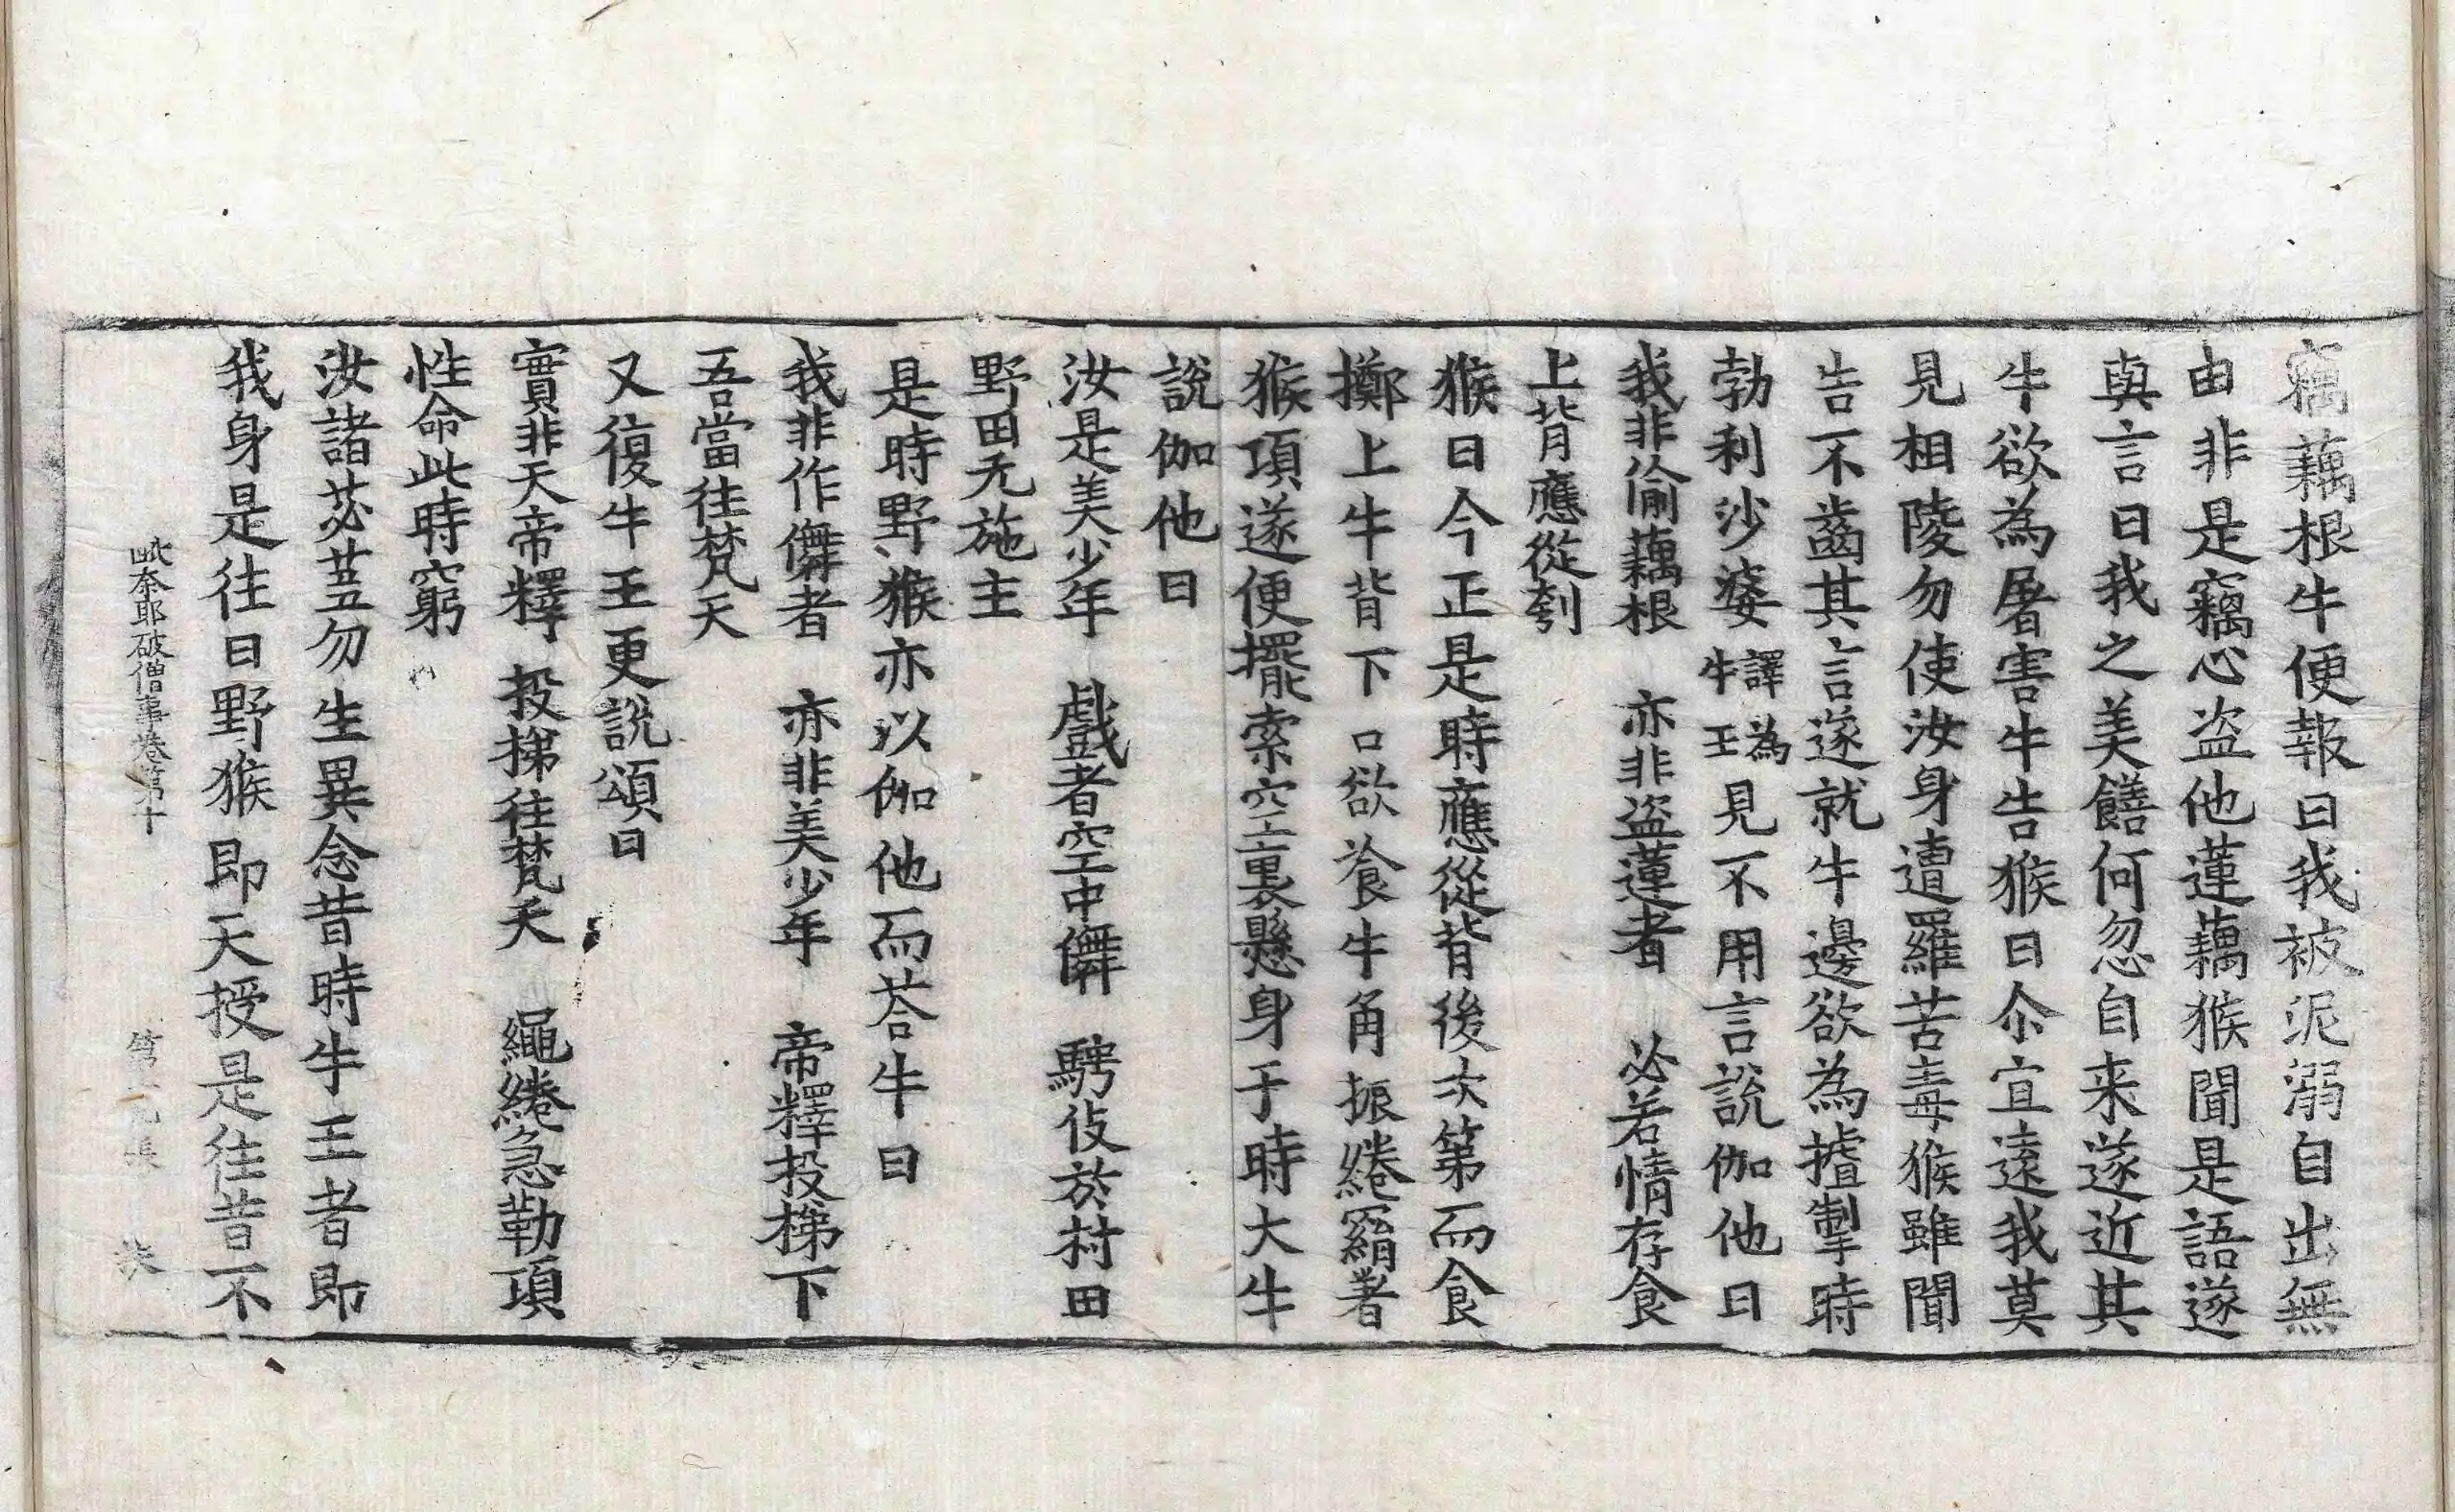 竊藕根牛便報曰我被泥溺自出無
由非是竊心盗他蓮藕猴聞是語遂
與言曰我之美饍何忽自来遂近其
牛欲為屠害牛告猴曰尒宜遠我莫
見相陵勿使汝身遭羅苦毒猴雖聞
告不齒其言遂就牛邊欲為揸掣時
勃利沙婆譯為牛王見不用言說伽他曰
我非偷藕根　亦非盗蓮者　必若情存食
上背應從刳
猴曰今正是時應從背後次第而食
擲上牛背下口欲飡牛角振綣羂著
猴項遂便擺索空裏懸身于時大牛
說伽他曰
汝是美少年　戲者空中儛　騁伎於村田
野田无施主
是時野猴亦以伽他而荅牛曰
我非作儛者　亦非美少年　帝釋投梯下
吾當往梵天
又復牛王更說頌曰
實非天帝釋　投梯往梵天　繩綣急勒項
性命此時窮
汝諸苾芻勿生異念昔時牛王者即
我身是往日野猴即天授是往昔不
毗奈耶破僧事卷第十　第　張